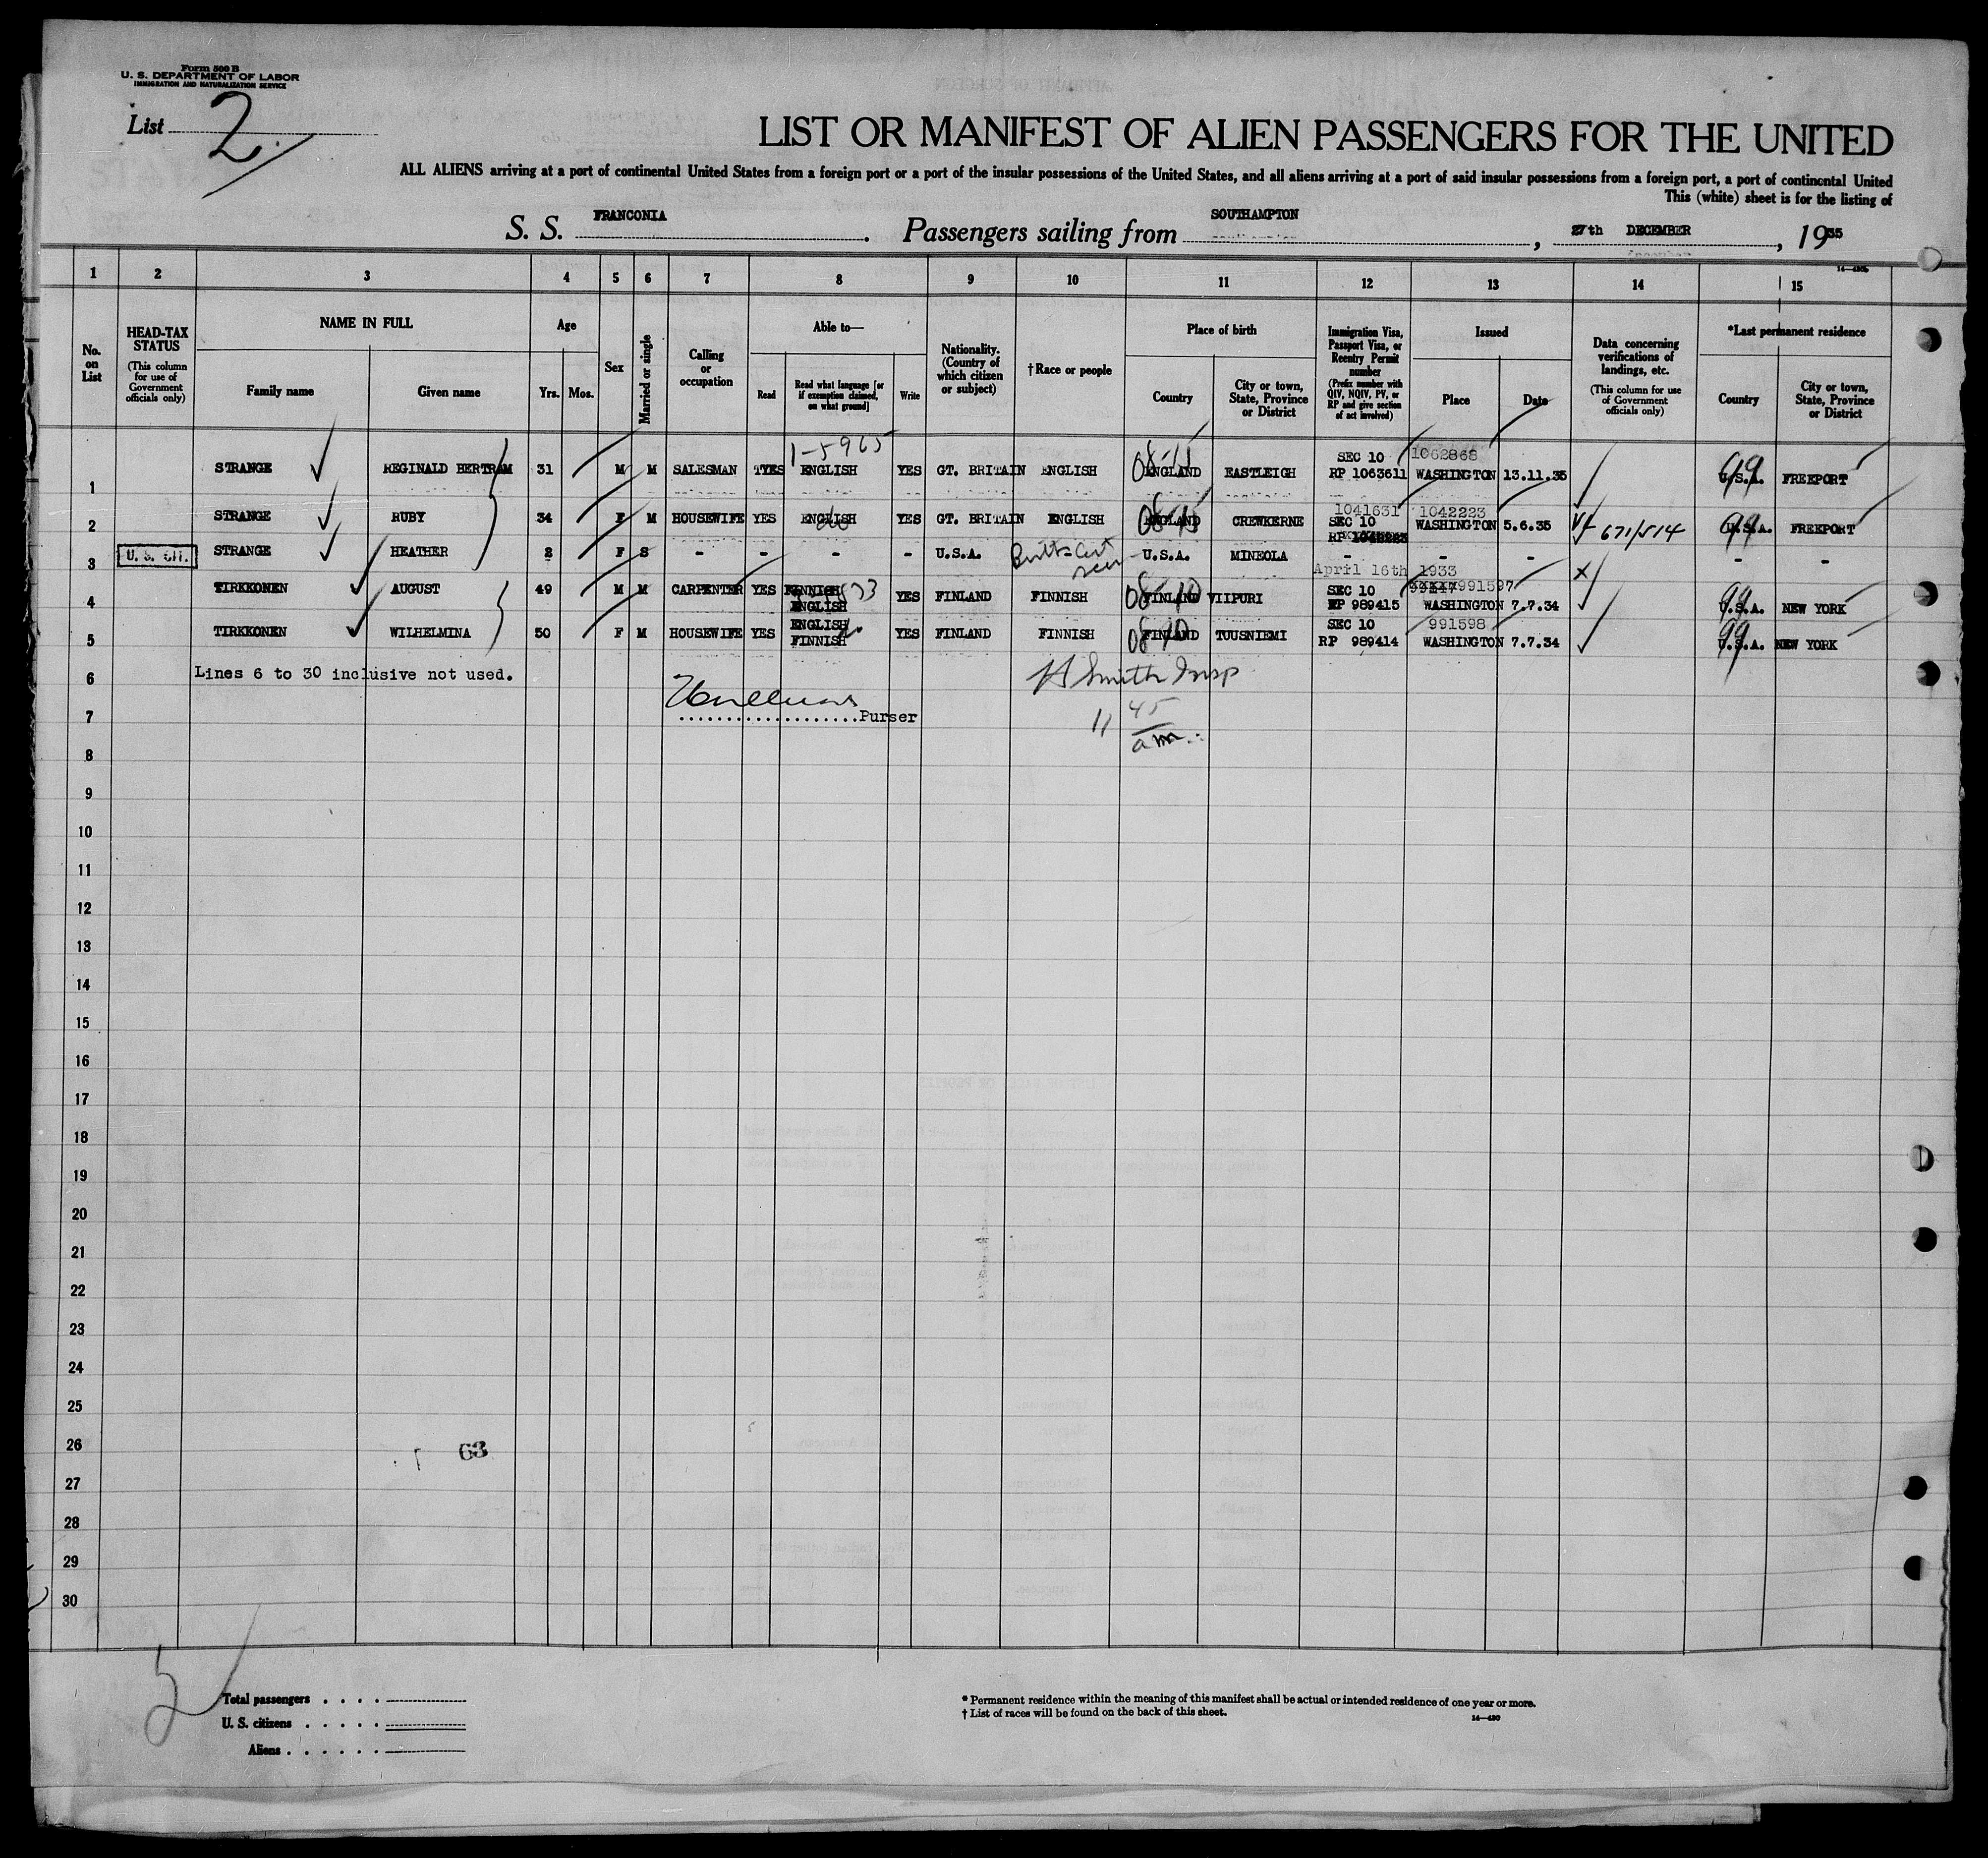 Form 500 B
U. S. DEPARTMENT OF LABOR
IMMIGRATION AND NATURALIZATION SERVICE
List 2
LIST OR MANIFEST OF ALIEN PASSENGERS FOR THE UNITED
ALL ALIENS arriving at a port of continental United States from a foreign port or a port of the insular possessions of the United States, and all aliens arriving at a port of said insular possessions from a foreign port, a port of continental United
This (white) sheet is for the listing of
S. S. FRANCONIA. Passengers sailing from SOUTHAMPTON, 27th DECEMBER, 1935
1 2 3 4 5 6 7 8 9 10 11 12 13 14 15
No. on List
HEAD-TAX STATUS (This column for use of Government officials only)
NAME IN FULL Family name Given name
Age Yrs. Mos.
Sex
Married or single
Calling or occupation
Able to— Read Read what language [or if exemption claimed, on what ground] Write
Nationality. (Country of which citizen or subject)
†Race or people
Place of birth Country City or town, State, Province or District
Immigration Visa, Passport Visa, or Reentry Permit number (Prefix number with QIV, NQIV, PV, or RP and give section of act involved)
Issued Place Date
Data concerning verifications of landings, etc. (This column for use of Government officials only)
*Last permanent residence Country City or town, State, Province or District
1-5965
SEC 10 1062868
1 STRANGE REGINALD BERTRAM 31 M M SALESMAN YES ENGLISH YES GT. BRITAIN ENGLISH ENGLAND EASTLEIGH RP 1063611 WASHINGTON 13.11.35 99 U.S.A. FREEPORT
1041631 1042223
2 STRANGE RUBY 34 F M HOUSEWIFE YES ENGLISH do YES GT. BRITAIN ENGLISH ENGLAND CREWKERNE SEC 10 WASHINGTON 5.6.35 671/514 99 U.S.A. FREEPORT
RP 1042223
3 U. S. CIT. STRANGE HEATHER 2 F S - - - - U.S.A. Birth Cert seen U.S.A. MINEOLA - - - - -
April 16th 1933
4 TIRKKONEN AUGUST 49 M M CARPENTER YES FINNISH ENGLISH YES FINLAND FINNISH 08-10 FINLAND VIIPURI SEC 10 991597 RP 989415 WASHINGTON 7.7.34 99 U.S.A. NEW YORK
5 TIRKKONEN WILHELMINA 50 F M HOUSEWIFE YES ENGLISH FINNISH YES FINLAND FINNISH FINLAND TUUSNIEMI SEC 10 991598 RP 989414 WASHINGTON 7.7.34 99 U.S.A. NEW YORK
6 Lines 6 to 30 inclusive not used.
H Smith Insp
7 ...................Purser
11 45 am
8
9
10
11
12
13
14
15
16
17
18
19
20
21
22
23
24
25
26
63
27
28
29
30
5
Total passengers . . . .
U. S. citizens . . . . .
Aliens . . . . . .
* Permanent residence within the meaning of this manifest shall be actual or intended residence of one year or more.
† List of races will be found on the back of this sheet.
14—430